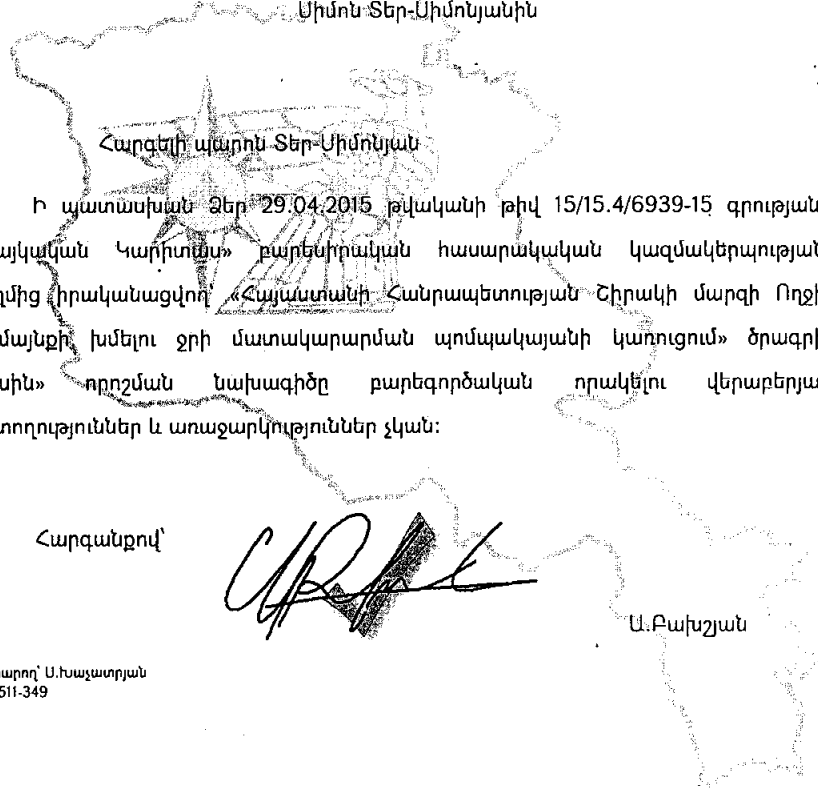 Սիմոն Տեր-Սիմոնյանին
Հարգելի պարոն Տեր-Սիմոնյան
Ի պատասխան Ձեր 29.04.2015 թվականի թիվ 15/15.4/6939-15 գրության
այկական Կարիտաս» բարեսիրական հասարակական կազմակերպության
ղմից իրականացվող՝ «Հայաստանի Հանրապետության Շիրակի մարզի Ողջի
մայնքի խմելու ջրի մատակարարման պոմպակայանի կառուցում» ծրագրի
սին» որոշման նախագիծը բարեգործական որակելու վերաբերյա
տողություններ և առաջարկություններ չկան:
Հարգանքով՝
Ա.Բախշյան
արող՝ Ս.Խաչատրյան
511-349